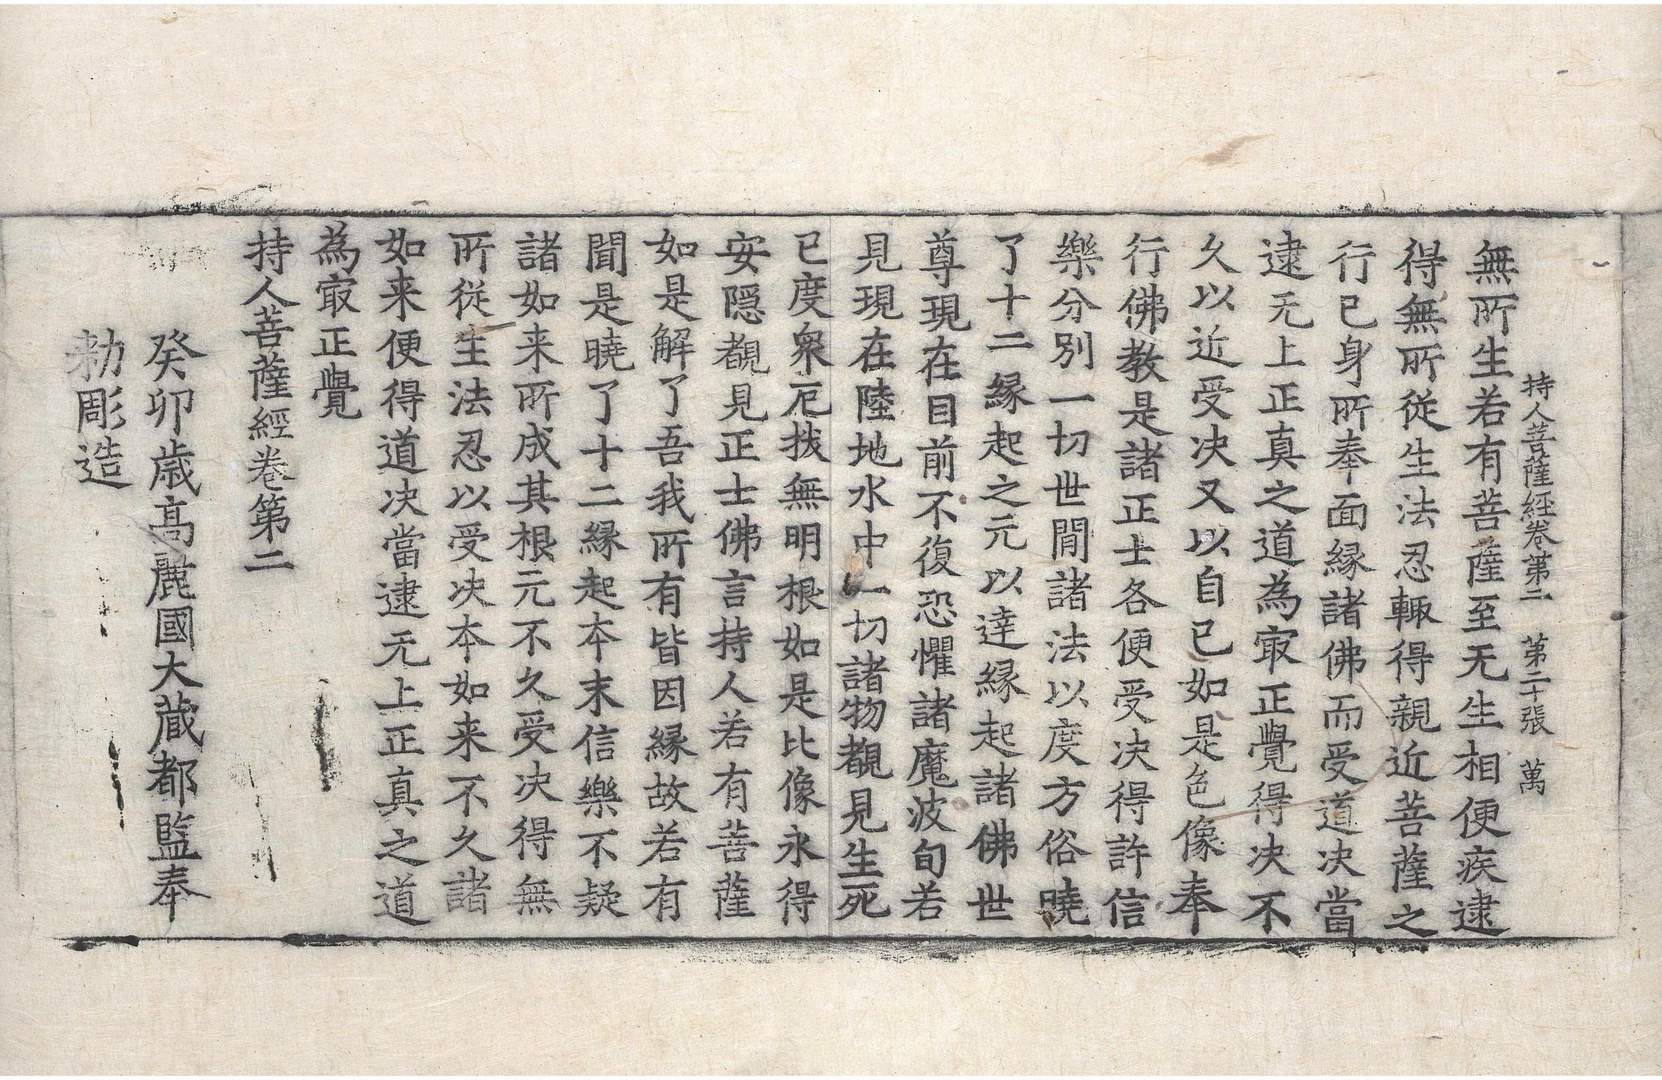 持人菩薩經卷第二 第二十張 萬
無所生若有菩薩至无生相便疾逮
得無所從生法忍輙得親近菩薩之
行已身所奉面縁諸佛而受道決當
逮无上正真之道為㝡正覺得決不
久以近受決又以自已如是色像奉
行佛教是諸正士各便受決得許信
樂分別一切世間諸法以度方俗曉
了十二縁起之元以達縁起諸佛世
尊現在目前不復恐懼諸魔波旬若
見現在陸地水中一切諸物覩見生死
已度衆厄拔無明根如是比像永得
安隱覩見正士佛言持人若有菩薩
如是解了吾我所有皆因縁故若有
聞是曉了十二縁起本末信樂不疑
諸如来所成其根元不久受決得無
所從生法忍以受決本如来不久諸
如来便得道決當逮无上正真之道
為㝡正覺
持人菩薩經卷第二
癸卯歲高麗國大藏都監奉
勑彫造